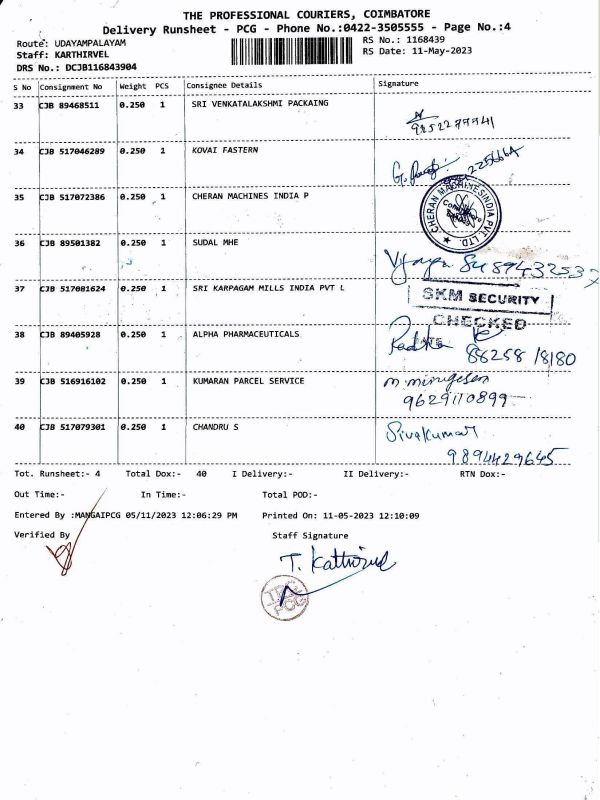 THE PROFESSIONAL COURIERS, COIMBATORE
Delivery Runsheet - PCG - Phone No.:0422-3505555 - Page No.:4
Route: UDAYAMPALAYAM
RS No.: 1168439
Staff: KARTHIRVEL
RS Date: 11-May-2023
DRS No.: DCJB116843904
S No Consignment No Weight PCS Consignee Details Signature
33 CJB 89468511 0.250 1 SRI VENKATALAKSHMI PACKAING
34 CJB 517046289 0.250 1 KOVAI FASTERN
35 CJB 517072386 0.250 1 CHERAN MACHINES INDIA P
CHERAN MACHINES INDIA PVT. LTD.
36 CJB 89501382 0.250 1 SUDAL MHE
37 CJB 517081624 0.250 1 SRI KARPAGAM MILLS INDIA PVT L
SKM SECURITY
CHECKED
38 CJB 89405928 0.250 1 ALPHA PHARMACEUTICALS
Radha 88258 18180
39 CJB 516916102 0.250 1 KUMARAN PARCEL SERVICE
9629110899
40 CJB 517079301 0.250 1 CHANDRU S Sivakumar
9894429645
Tot. Runsheet:- 4 Total Dox:- 40 I Delivery:- II Delivery:- RTN Dox:-
Out Time:- In Time:- Total POD:-
Entered By :MANGAIPCG 05/11/2023 12:06:29 PM Printed On: 11-05-2023 12:10:09
Verified By Staff Signature